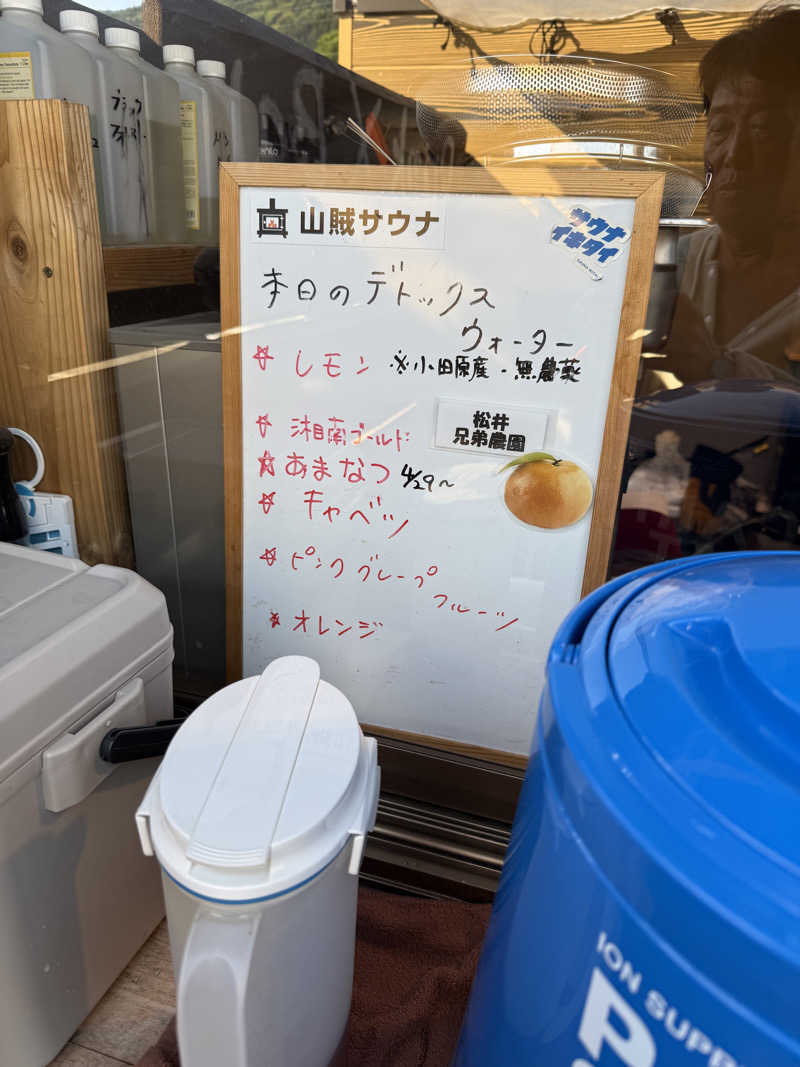 ブラック
山賊サウナ
サウナ
イキタイ
本日のデトックス
ウォーター
☆ レモン ※小田原産・無農薬
☆ 湘南ゴールド
松井
兄弟農園
☆ あまなつ 4/29〜
☆ キャベツ
☆ ピンクグレープ
フルーツ
☆ オレンジ
ION SUPP